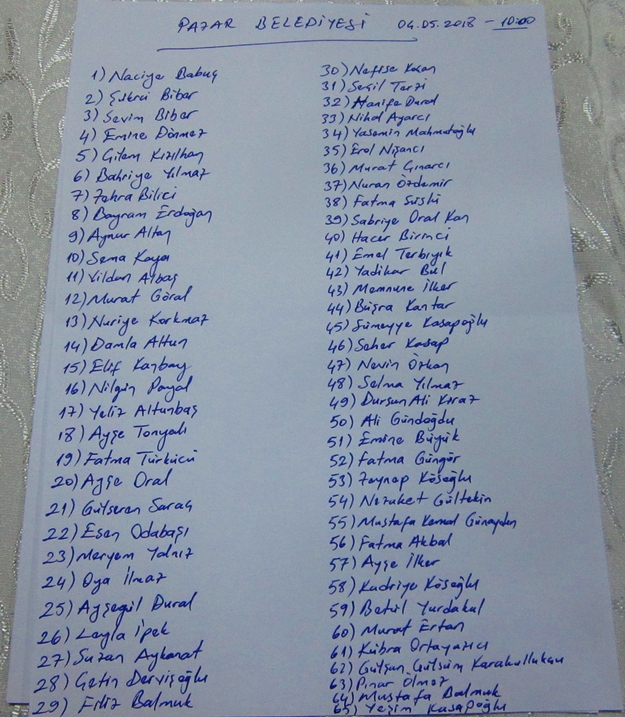 PAZAR BELEDİYESİ 04.05.2018 - 10:00
1) Naciye Babuç
2) Şükrü Bibar
3) Sevim Bibar
4) Emine Dönmez
5) Çiğdem Kızılhan
6) Bahriye Yılmaz
7) Zehra Bilici
8) Bayram Erdoğan
9) Aynur Altay
10) Sema Kaya
11) Vildan Akbaş
12) Murat Göral
13) Nuriye Korkmaz
14) Damla Altun
15) Elif Kanbay
16) Nilgün Poyal
17) Yeliz Altunbaş
18) Ayşe Tonyalı
19) Fatma Türkücü
20) Ayşe Oral
21) Gülseren Saraç
22) Esen Odabaşı
23) Meryem Yalnız
24) Oya İlmaz
25) Ayşegül Dural
26) Leyla İpek
27) Suzan Aykanat
28) Çetin Dervişoğlu
29) Filiz Balmuk
30) Nefise Kocan
31) Seçil Terzi
32) Hanife Dural
33) Nihal Ayarcı
34) Yasemin Mahmutoğlu
35) Erol Nişancı
36) Murat Çınarcı
37) Nuran Özdemir
38) Fatma Süslü
39) Sabriye Oral Kan
40) Hacer Birinci
41) Emel Terbıyık
42) Yadikar Bul
43) Memnune İlker
44) Büşra Kantar
45) Sümeyye Kasapoğlu
46) Seher Kasap
47) Nevin Özkan
48) Selma Yılmaz
49) Dursun Ali Kiraz
50) Ali Gündoğdu
51) Emine Büyük
52) Fatma Güngör
53) Zeynep Köseoğlu
54) Nezaket Gültekin
55) Mustafa Kemal Günaydın
56) Fatma Akbal
57) Ayşe İlker
58) Kadriye Köseoğlu
59) Betül Yurdakul
60) Murat Ertan
61) Kübra Ortayazıcı
62) Gülşan Gülsüm Karakullukçu
63) Pınar Ölmez
64) Mustafa Balmuk
65) Yeşim Kasapoğlu